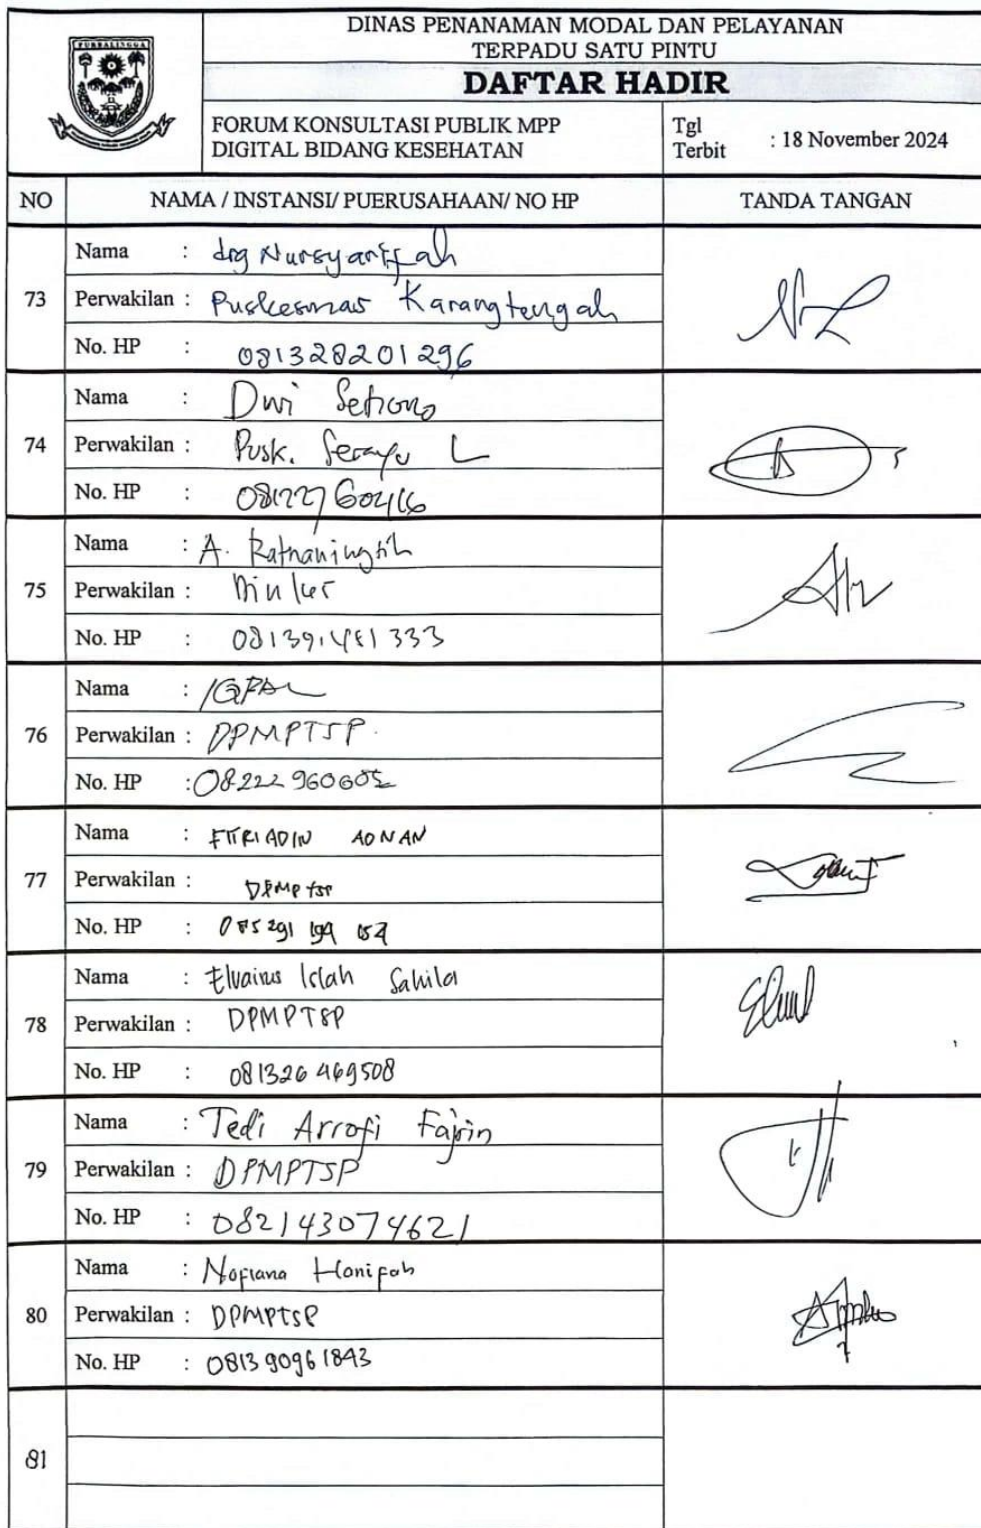 PURBALINGGA
DINAS PENANAMAN MODAL DAN PELAYANAN
TERPADU SATU PINTU
DAFTAR HADIR
FORUM KONSULTASI PUBLIK MPP
DIGITAL BIDANG KESEHATAN
Tgl
Terbit : 18 November 2024
NO NAMA / INSTANSI/ PUERUSAHAAN/ NO HP TANDA TANGAN
73
Nama : drg Nursyariffah
Perwakilan : Puskesmas Karangtengah
No. HP : 081328201296
74
Nama : Dwi Setiono
Perwakilan : Pusk. Serayu L
No. HP :
75
Nama : A. Ratnaningsih
Perwakilan :
No. HP :
76
Nama : IQBAL
Perwakilan : DPMPTSP.
No. HP :
77
Nama : FITRIADIN ADNAN
Perwakilan : DPMPTSP
No. HP :
78
Nama : Islah Sahila
Perwakilan : DPMPTSP
No. HP : 081326469508
79
Nama : Tedi Arrofi Fajrin
Perwakilan : DPMPTSP
No. HP : 082143074621
80
Nama : Nofiana Hanifah
Perwakilan : DPMPTSP
No. HP : 081390961843
81